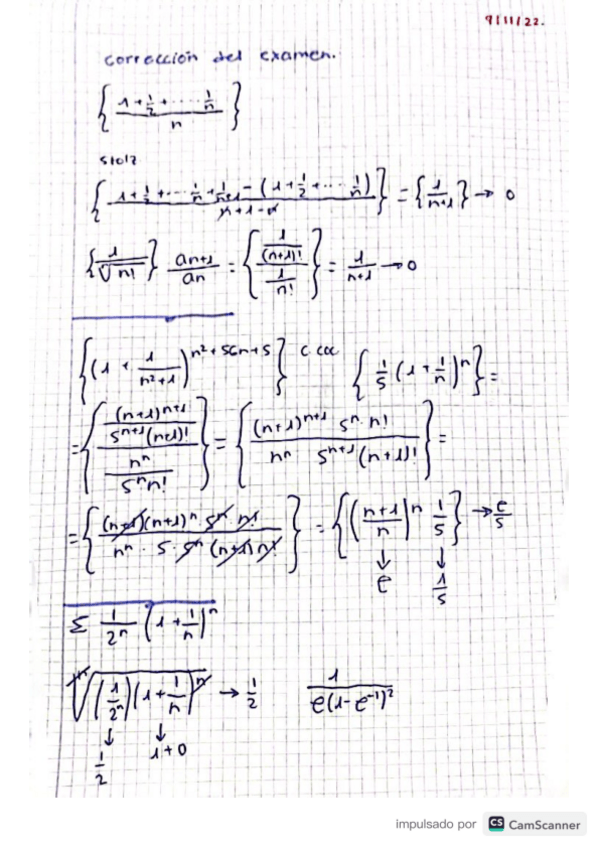 9/11/22.
corrección del examen.
{ (1 + 1/2 + ····· 1/n) / n }
Stolz
{ (1 + 1/2 + ··· 1/n + 1/(n+1) - (1 + 1/2 + ··· 1/n)) / (n+1-n) } = { 1/(n+1) } → 0
{ 1/ⁿ√n! } an+1/an = { (1/(n+1)!) / (1/n!) } = 1/(n+1) → 0
{ (1 + 1/(n²+1))^(n²+56n+5) } { 1/5 (1 + 1/n)ⁿ } =
= { ((n+1)ⁿ⁺¹ / 5ⁿ⁺¹(n+1)!) / (nⁿ / 5ⁿn!) } = { (n+1)ⁿ⁺¹ 5ⁿ · n! / nⁿ 5ⁿ⁺¹(n+1)! } =
= { (n+1)(n+1)ⁿ 5ⁿ n! / nⁿ · 5 · 5ⁿ (n+1) n! } = { ((n+1)/n)ⁿ 1/5 } → e/5
↓ ↓
e 1/5
Σ 1/2ⁿ (1 + 1/n)ⁿ
ⁿ√(1/2ⁿ)(1 + 1/n)ⁿ → 1/2 1/(e(1-e⁻¹)²)
↓ ↓
1/2 1+0
impulsado por CS CamScanner